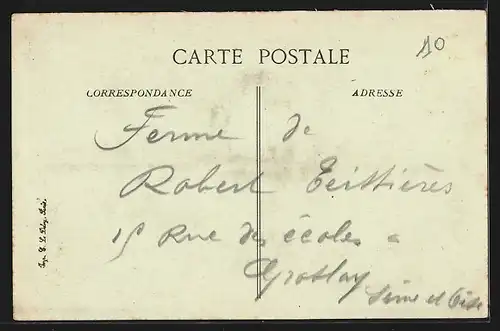 CARTE POSTALE
10
CORRESPONDANCE
ADRESSE
Ferme de
Robert Teissières
15 Rue des écoles à
Groslay
Seine et Oise